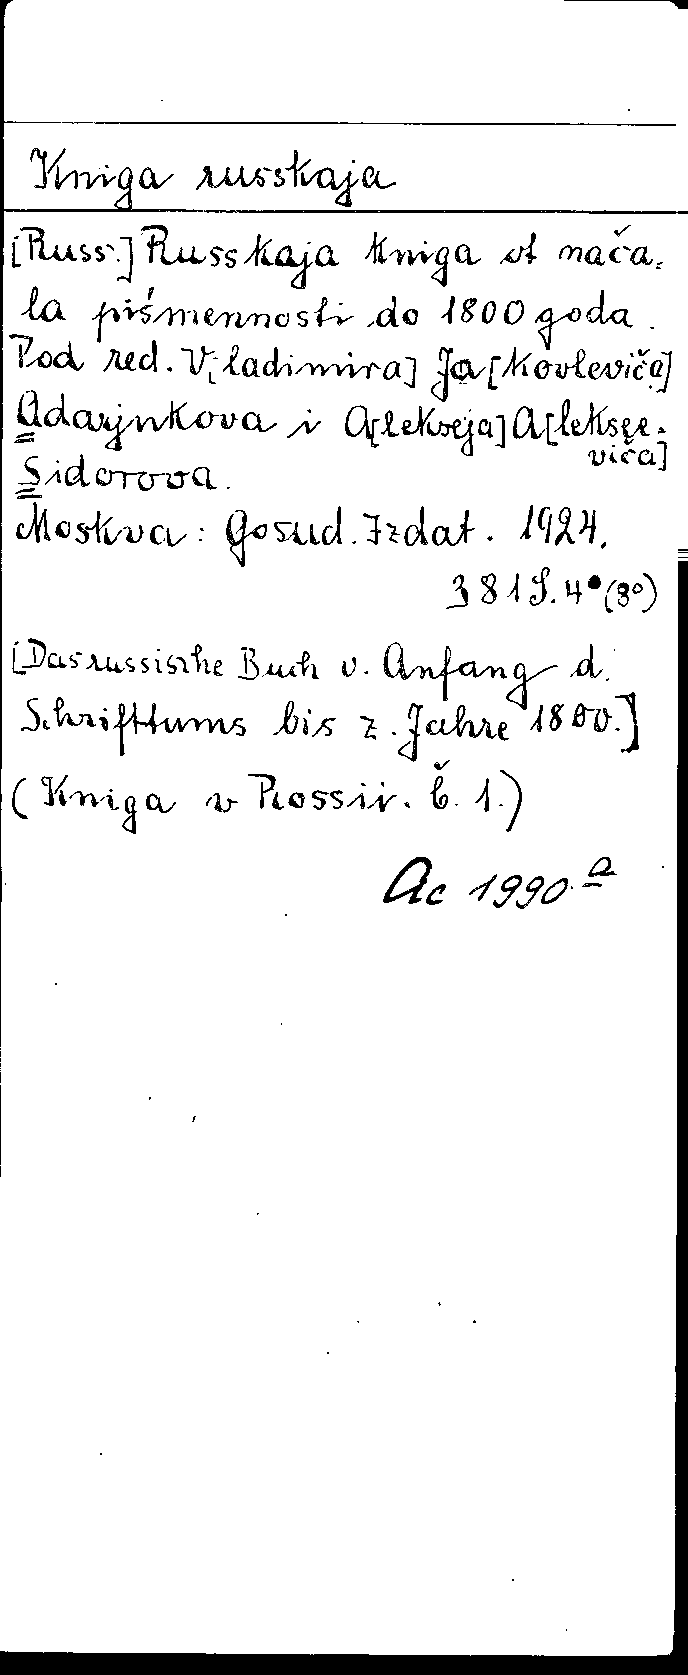 Kniga russkaja
[Russ.] Russkaja kniga ot nača-
la piśmennosti do 1800 goda.
Pod red. V[ladimira] Ja[kovleviča]
Adarjukova i A[lekseja] A[leksee-
viča]
Sidorova.
Moskva: Gosud. Izdat. 1924.
381 S. 4° (8°)
[Das russische Buch v. Anfang d.
Schrifttums bis z. Jahre 1800.]
(Kniga v Rossii. Č. 1.)
Ac 1990 a